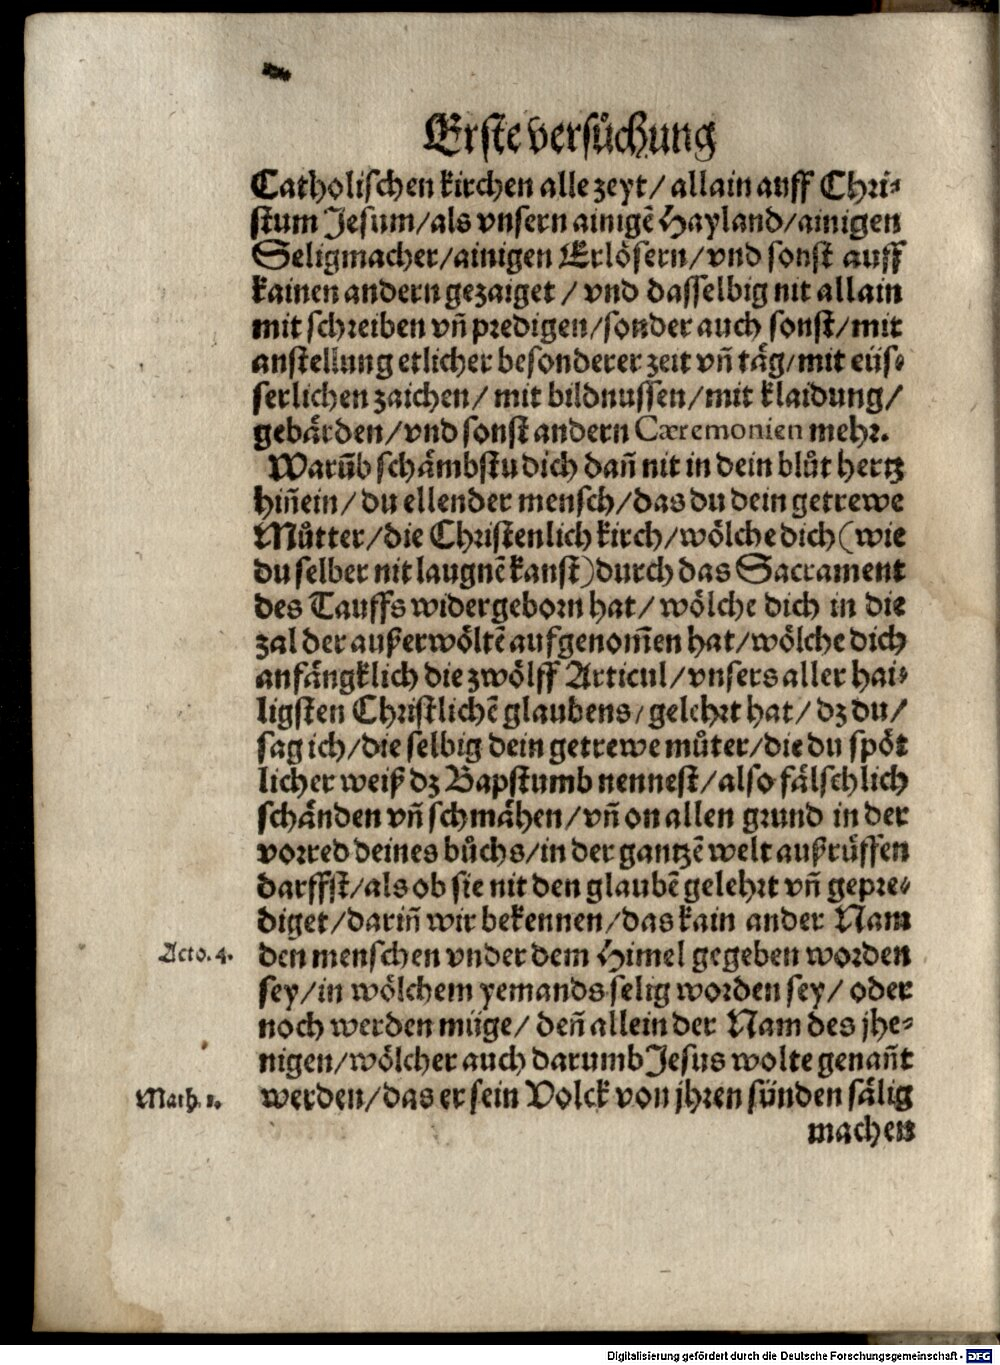 Erste versůchung
Catholischen kirchen alle zeyt/ allain auff Chri⸗
stum Jesum/als vnsern ainigẽ Hayland/ainigen
Seligmacher/ainigen Erlösern/vnd sonst auff
kainen andern gezaiget / vnd dasselbig nit allain
mit schreiben vñ predigen/sonder auch sonst/mit
anstellung etlicher besonderer zeit vñ täg/mit eüs⸗
serlichen zaichen/ mit bildnussen/mit klaidung/
gebärden/vnd sonst andern Cæremonien mehr.
Warũb schämbstu dich dañ nit in dein blůt hertz
hiñein/ du ellender mensch/das du dein getrewe
Můtter/die Christenlich kirch/wölche dich (wie
du selber nit laugnẽ kanst) durch das Sacrament
des Tauffs widergeborn hat/ wölche dich in die
zal der außerwöltẽ aufgenom̃en hat/wölche dich
anfängklich die zwölff Articul/vnsers aller hai⸗
ligsten Christlichẽ glaubens/gelehrt hat/ dz du/
sag ich/die selbig dein getrewe můter/die du spöt
licher weiß dz Bapstumb nennest/also fälschlich
schänden vñ schmähen/vñ on allen grund in der
vorred deines bůchs/in der gantzẽ welt außrůffen
darffst/als ob sie nit den glaubẽ gelehrt vñ gepre⸗
diget/dariñ wir bekennen/das kain ander Nam
Acto. 4. den menschen vnder dem Himel gegeben worden
sey/in wölchem yemands selig worden sey/ oder
noch werden müge/ deñ allein der Nam des jhe⸗
nigen/wölcher auch darumb Jesus wolte genañt
Math. 1. werden/das er sein Volck von jhren sünden sälig
machen
Digitalisierung gefördert durch die Deutsche Forschungsgemeinschaft - DFG